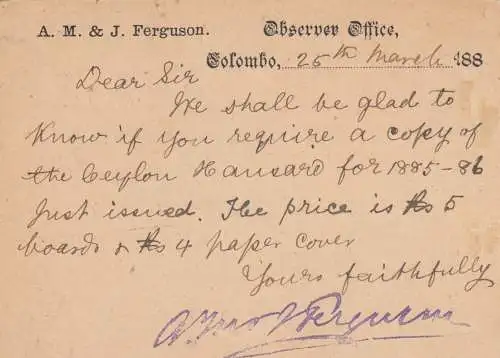 A. M. & J. Ferguson. Observer Office,
Colombo, 25th March 188
Dear Sir
We shall be glad to
know if you require a copy of
the Ceylon Hansard for 1885-86
just issued. The price is Rs 5
boards & Rs 4 paper cover
Yours faithfully
Ferguson